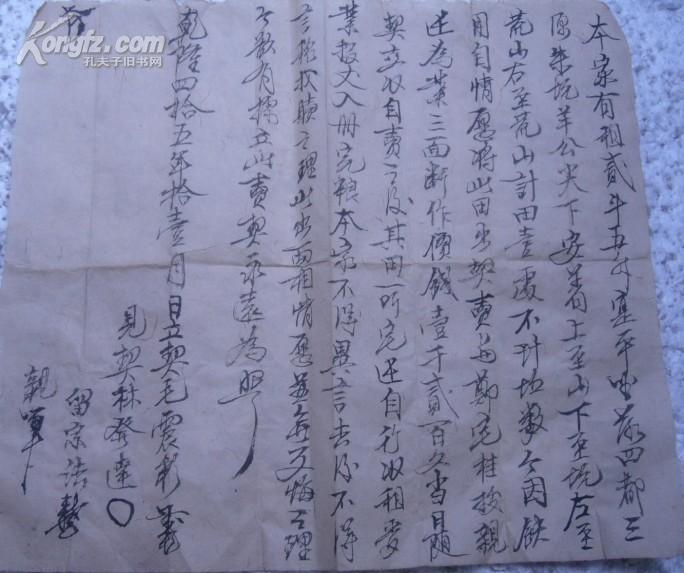 本家有租貳斗五升坐平 四都三
源朱坑羊公尖下安着上至山下至坑左至
荒山右至荒山計田壹處不計坵數今因缺
用自情愿將此田出契賣與鄭宅桂 親
邊為業三面斷作價錢壹千貳百文當日隨
契立收自賣之後其田一听宅邊自行收租管
業投丈入冊完粮本家不得異言去後不得
言找取贖之理此出兩相情愿並無反悔之理
今欲有據立此賣契永遠為照
乾隆四拾五年拾壹月 日立契毛震彩
見契林發達〇
留宗法
親筆
Kongfz.com
孔夫子旧书网